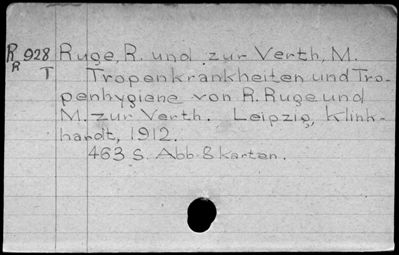 R 928 Ruge, R. und zur Verth, M.
R T Tropenkrankheiten und Tro-
penhygiene von R. Ruge und
M. zur Verth. Leipzig, Klink-
hardt, 1912.
463 S. Abb. & Karten.